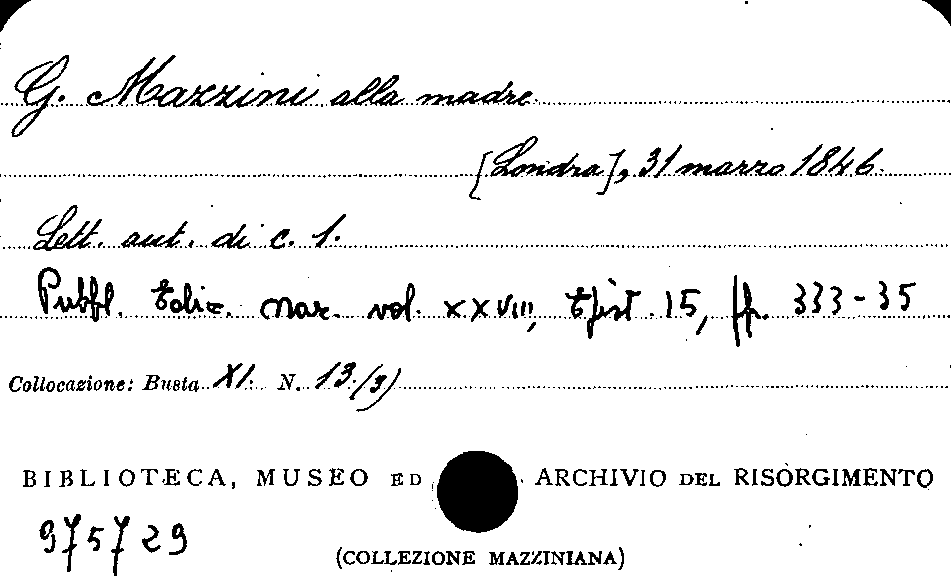 G. Mazzini alla madre
[Londra], 31 marzo 1846.
Lett. aut. di c. 1.
Pubbl. Ediz. Naz. vol. XXVIII, Epist. 15, pp. 333-35
Collocazione: Busta XI. N. 13/3)
BIBLIOTECA, MUSEO ED ARCHIVIO DEL RISORGIMENTO
975729
(COLLEZIONE MAZZINIANA)